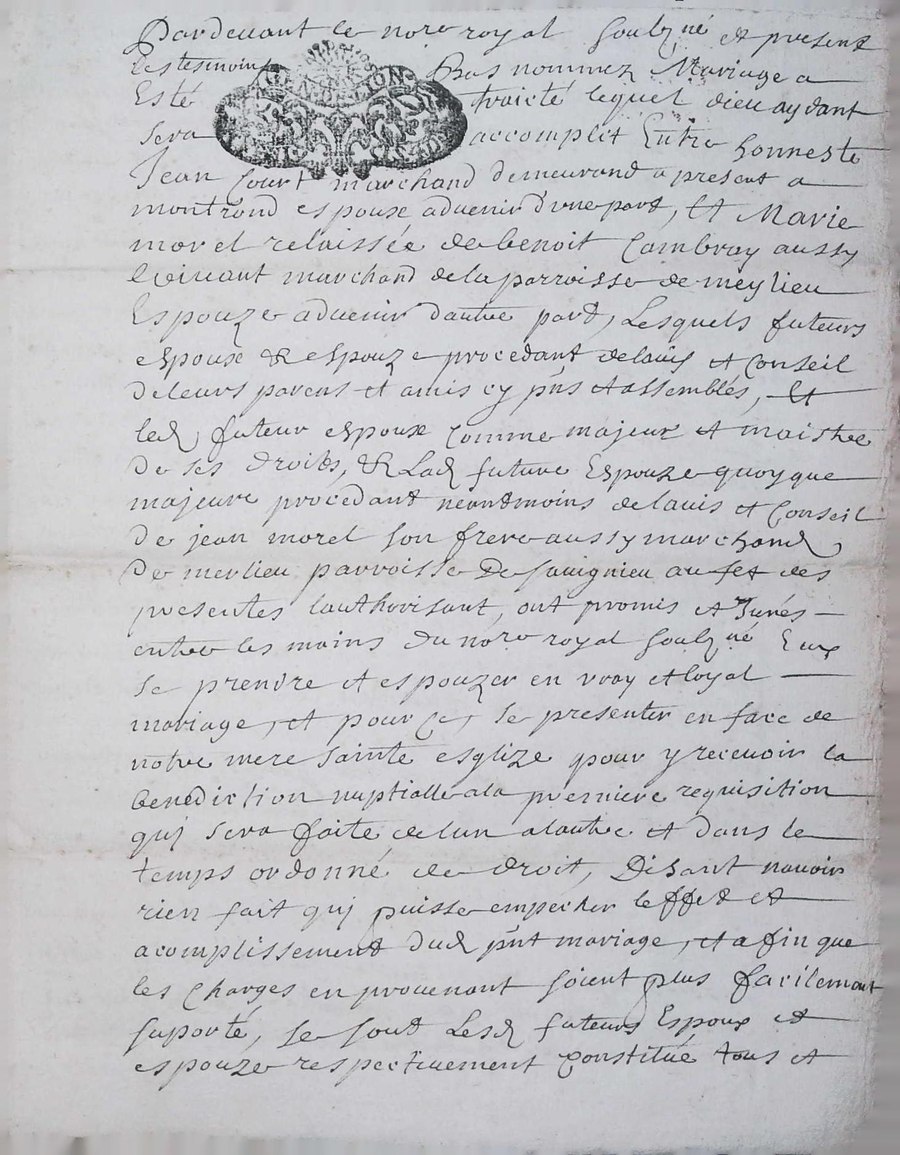 Pardevant le nore royal soubzné et present
les tesmoins Bas nommez Mariage a
Esté traicté lequel dieu aydant
GEN DE LION
sera accomplit Entre honneste
Jean Court marchand demeurand a present a
montrond espoux advenir d'une part, Et Marie
morel relaissée de benoit Cambray aussy
vivant marchand de la parroisse de meylieu
Espouze advenir dautre part, Lesquels futeurs
espoux & Espouze procedant delavis et Conseil
de leurs parens et amis cy pnts et assemblés, Et
led futeur espoux comme majeur et maistre
de ses droits, & Lad future Espouze quoy que
majeure procedant neantmoins delavis et Conseil
de jean morel son frere aussy marchand
de merlieu parroisse De savignieu au fet des
presentes lauthorisant, ont promis et Jurés
entre les mains du nore royal soubzné Eux
se prendre et espouzer en vray et loyal
mariage, et pour ce, se presenter en face de
notre mere sainte esglize pour y recevoir la
benediction nuptialle ala premiere requisition
quj sera faite de lun a lautre et dans le
temps ordonné de droit, Disant navoir
rien fait quj puisse empecher leffet et
acomplissement dud pnt mariage, et afin que
les charges en provenant soient plus facilement
suporté, se sont Lesd futeurs Espoux et
espouze respectivement constitué tous et